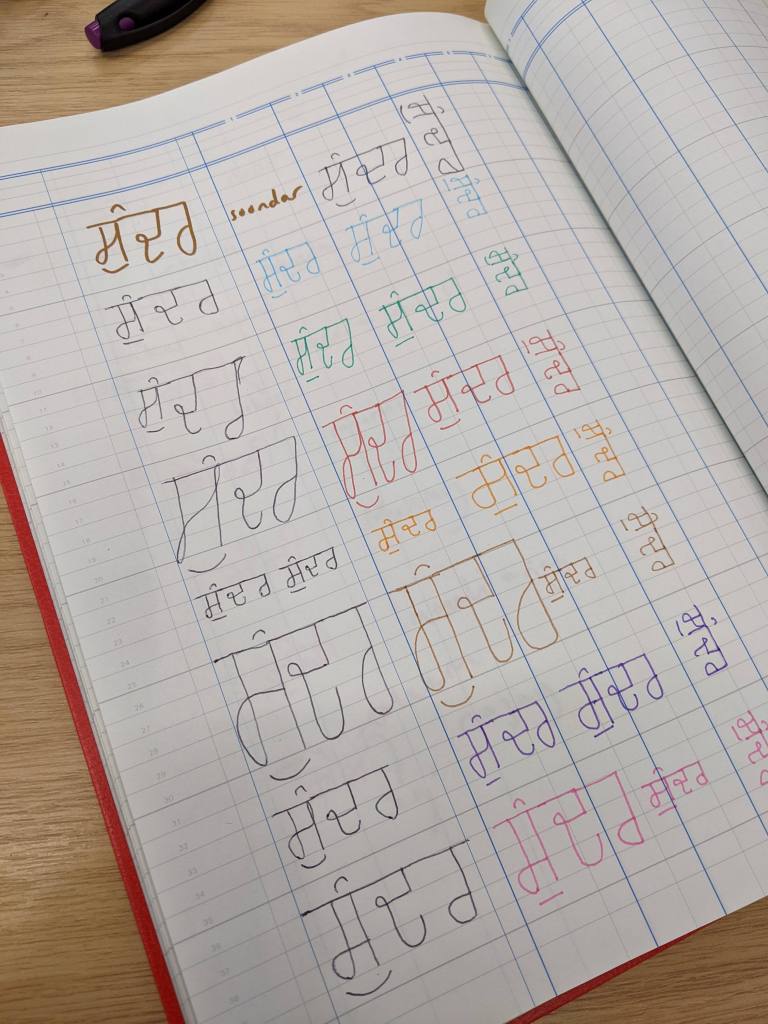 ਸੁੰਦਰ soondar ਸੁੰਦਰ ਸੁੰਦਰ
ਸੁੰਦਰ ਸੁੰਦਰ ਸੁੰਦਰ ਸੁੰਦਰ
ਸੁੰਦਰ ਸੁੰਦਰ ਸੁੰਦਰ ਸੁੰਦਰ
ਸੁੰਦਰ ਸੁੰਦਰ ਸੁੰਦਰ ਸੁੰਦਰ
ਸੁੰਦਰ ਸੁੰਦਰ ਸੁੰਦਰ ਸੁੰਦਰ ਸੁੰਦਰ
ਸੁੰਦਰ ਸੁੰਦਰ ਸੁੰਦਰ ਸੁੰਦਰ
ਸੁੰਦਰ ਸੁੰਦਰ ਸੁੰਦਰ ਸੁੰਦਰ
ਸੁੰਦਰ ਸੁੰਦਰ ਸੁੰਦਰ ਸੁੰਦਰ